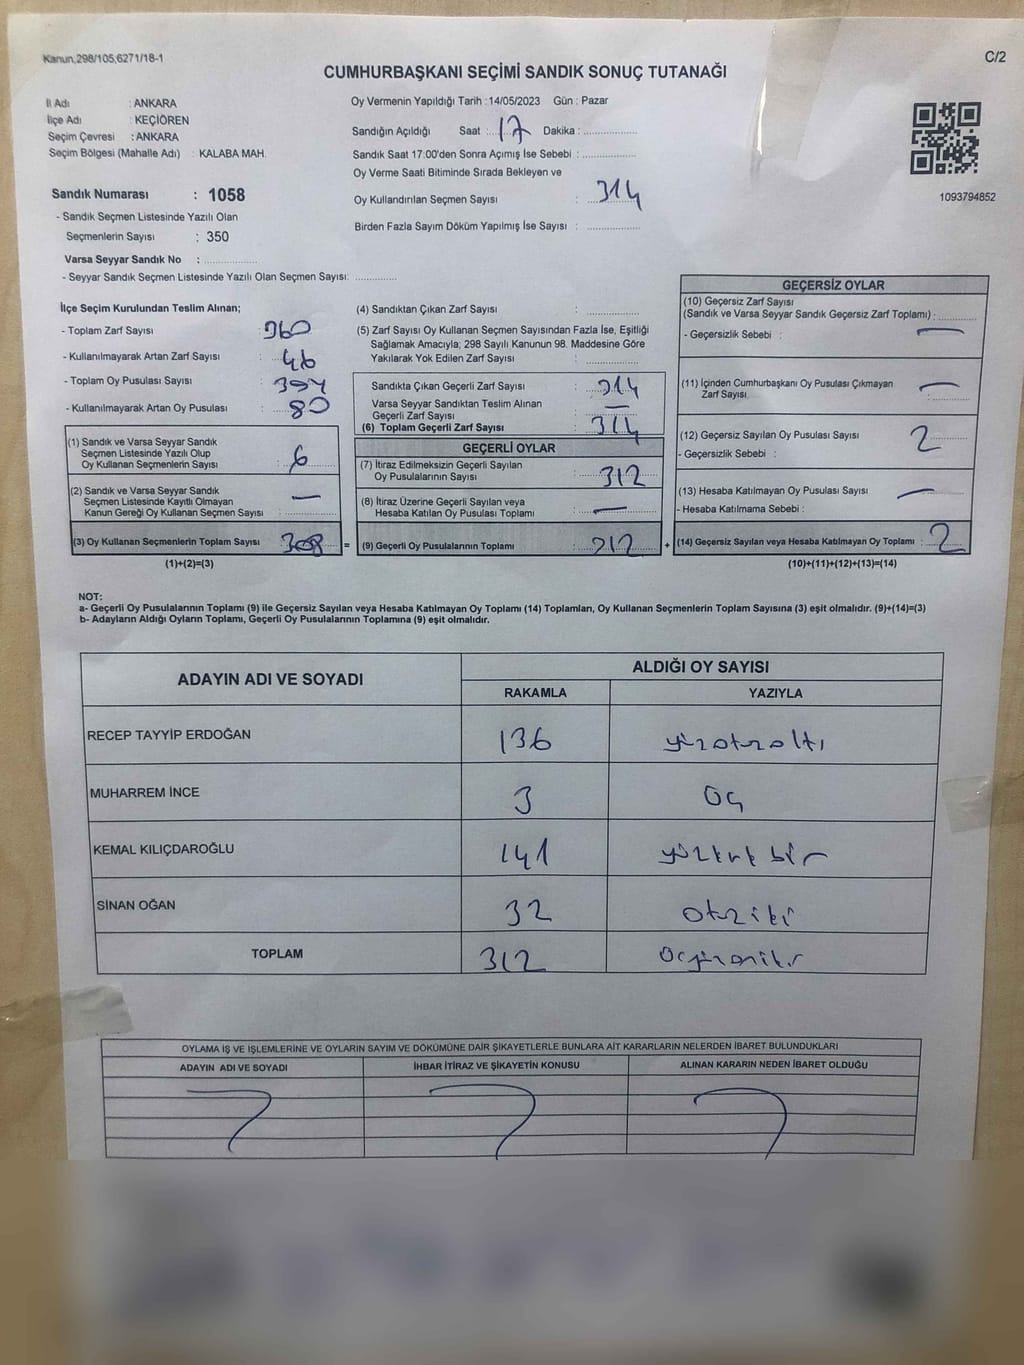 Kanun,298/105,6271/18-1
C/2
CUMHURBAŞKANI SEÇİMİ SANDIK SONUÇ TUTANAĞI
İl Adı : ANKARA
İlçe Adı : KEÇİÖREN
Seçim Çevresi : ANKARA
Seçim Bölgesi (Mahalle Adı) : KALABA MAH.
Sandık Numarası : 1058
- Sandık Seçmen Listesinde Yazılı Olan
Seçmenlerin Sayısı : 350
Varsa Seyyar Sandık No :
- Seyyar Sandık Seçmen Listesinde Yazılı Olan Seçmen Sayısı:
Oy Vermenin Yapıldığı Tarih :14/05/2023 Gün : Pazar
Sandığın Açıldığı Saat : 17 Dakika :
Sandık Saat 17:00'den Sonra Açımış İse Sebebi :
Oy Verme Saati Bitiminde Sırada Bekleyen ve
Oy Kullandırılan Seçmen Sayısı : 314
Birden Fazla Sayım Döküm Yapılmış İse Sayısı :
1093794852
İlçe Seçim Kurulundan Teslim Alınan;
- Toplam Zarf Sayısı : 360
- Kullanılmayarak Artan Zarf Sayısı : 46
- Toplam Oy Pusulası Sayısı : 394
- Kullanılmayarak Artan Oy Pusulası : 80
(1) Sandık ve Varsa Seyyar Sandık
Seçmen Listesinde Yazılı Olup
Oy Kullanan Seçmenlerin Sayısı : 6
(2) Sandık ve Varsa Seyyar Sandık
Seçmen Listesinde Kayıtlı Olmayan
Kanun Gereği Oy Kullanan Seçmen Sayısı : —
(3) Oy Kullanan Seçmenlerin Toplam Sayısı : 308 =
(1)+(2)=(3)
(4) Sandıktan Çıkan Zarf Sayısı :
(5) Zarf Sayısı Oy Kullanan Seçmen Sayısından Fazla İse, Eşitliği
Sağlamak Amacıyla; 298 Sayılı Kanunun 98. Maddesine Göre
Yakılarak Yok Edilen Zarf Sayısı :
Sandıkta Çıkan Geçerli Zarf Sayısı : 314
Varsa Seyyar Sandıktan Teslim Alınan
Geçerli Zarf Sayısı : —
(6) Toplam Geçerli Zarf Sayısı : 314
GEÇERLİ OYLAR
(7) İtiraz Edilmeksizin Geçerli Sayılan
Oy Pusulalarının Sayısı : 312
(8) İtiraz Üzerine Geçerli Sayılan veya
Hesaba Katılan Oy Pusulası Toplamı : —
(9) Geçerli Oy Pusulalarının Toplamı : 312 +
GEÇERSİZ OYLAR
(10) Geçersiz Zarf Sayısı
(Sandık ve Varsa Seyyar Sandık Geçersiz Zarf Toplamı) :
- Geçersizlik Sebebi : —
(11) İçinden Cumhurbaşkanı Oy Pusulası Çıkmayan
Zarf Sayısı : —
(12) Geçersiz Sayılan Oy Pusulası Sayısı : 2
- Geçersizlik Sebebi :
(13) Hesaba Katılmayan Oy Pusulası Sayısı : —
- Hesaba Katılmama Sebebi :
(14) Geçersiz Sayılan veya Hesaba Katılmayan Oy Toplamı : 2
(10)+(11)+(12)+(13)=(14)
NOT:
a- Geçerli Oy Pusulalarının Toplamı (9) ile Geçersiz Sayılan veya Hesaba Katılmayan Oy Toplamı (14) Toplamları, Oy Kullanan Seçmenlerin Toplam Sayısına (3) eşit olmalıdır. (9)+(14)=(3)
b- Adayların Aldığı Oyların Toplamı, Geçerli Oy Pusulalarının Toplamına (9) eşit olmalıdır.
ADAYIN ADI VE SOYADI
ALDIĞI OY SAYISI
RAKAMLA YAZIYLA
RECEP TAYYİP ERDOĞAN 136 yüzotuzaltı
MUHARREM İNCE 3 üç
KEMAL KILIÇDAROĞLU 141 yüzkırkbir
SİNAN OĞAN 32 otuziki
TOPLAM 312 üçyüzoniki
OYLAMA İŞ VE İŞLEMLERİNE VE OYLARIN SAYIM VE DÖKÜMÜNE DAİR ŞİKAYETLERLE BUNLARA AİT KARARLARIN NELERDEN İBARET BULUNDUKLARI
ADAYIN ADI VE SOYADI İHBAR İTİRAZ VE ŞİKAYETİN KONUSU ALINAN KARARIN NEDEN İBARET OLDUĞU